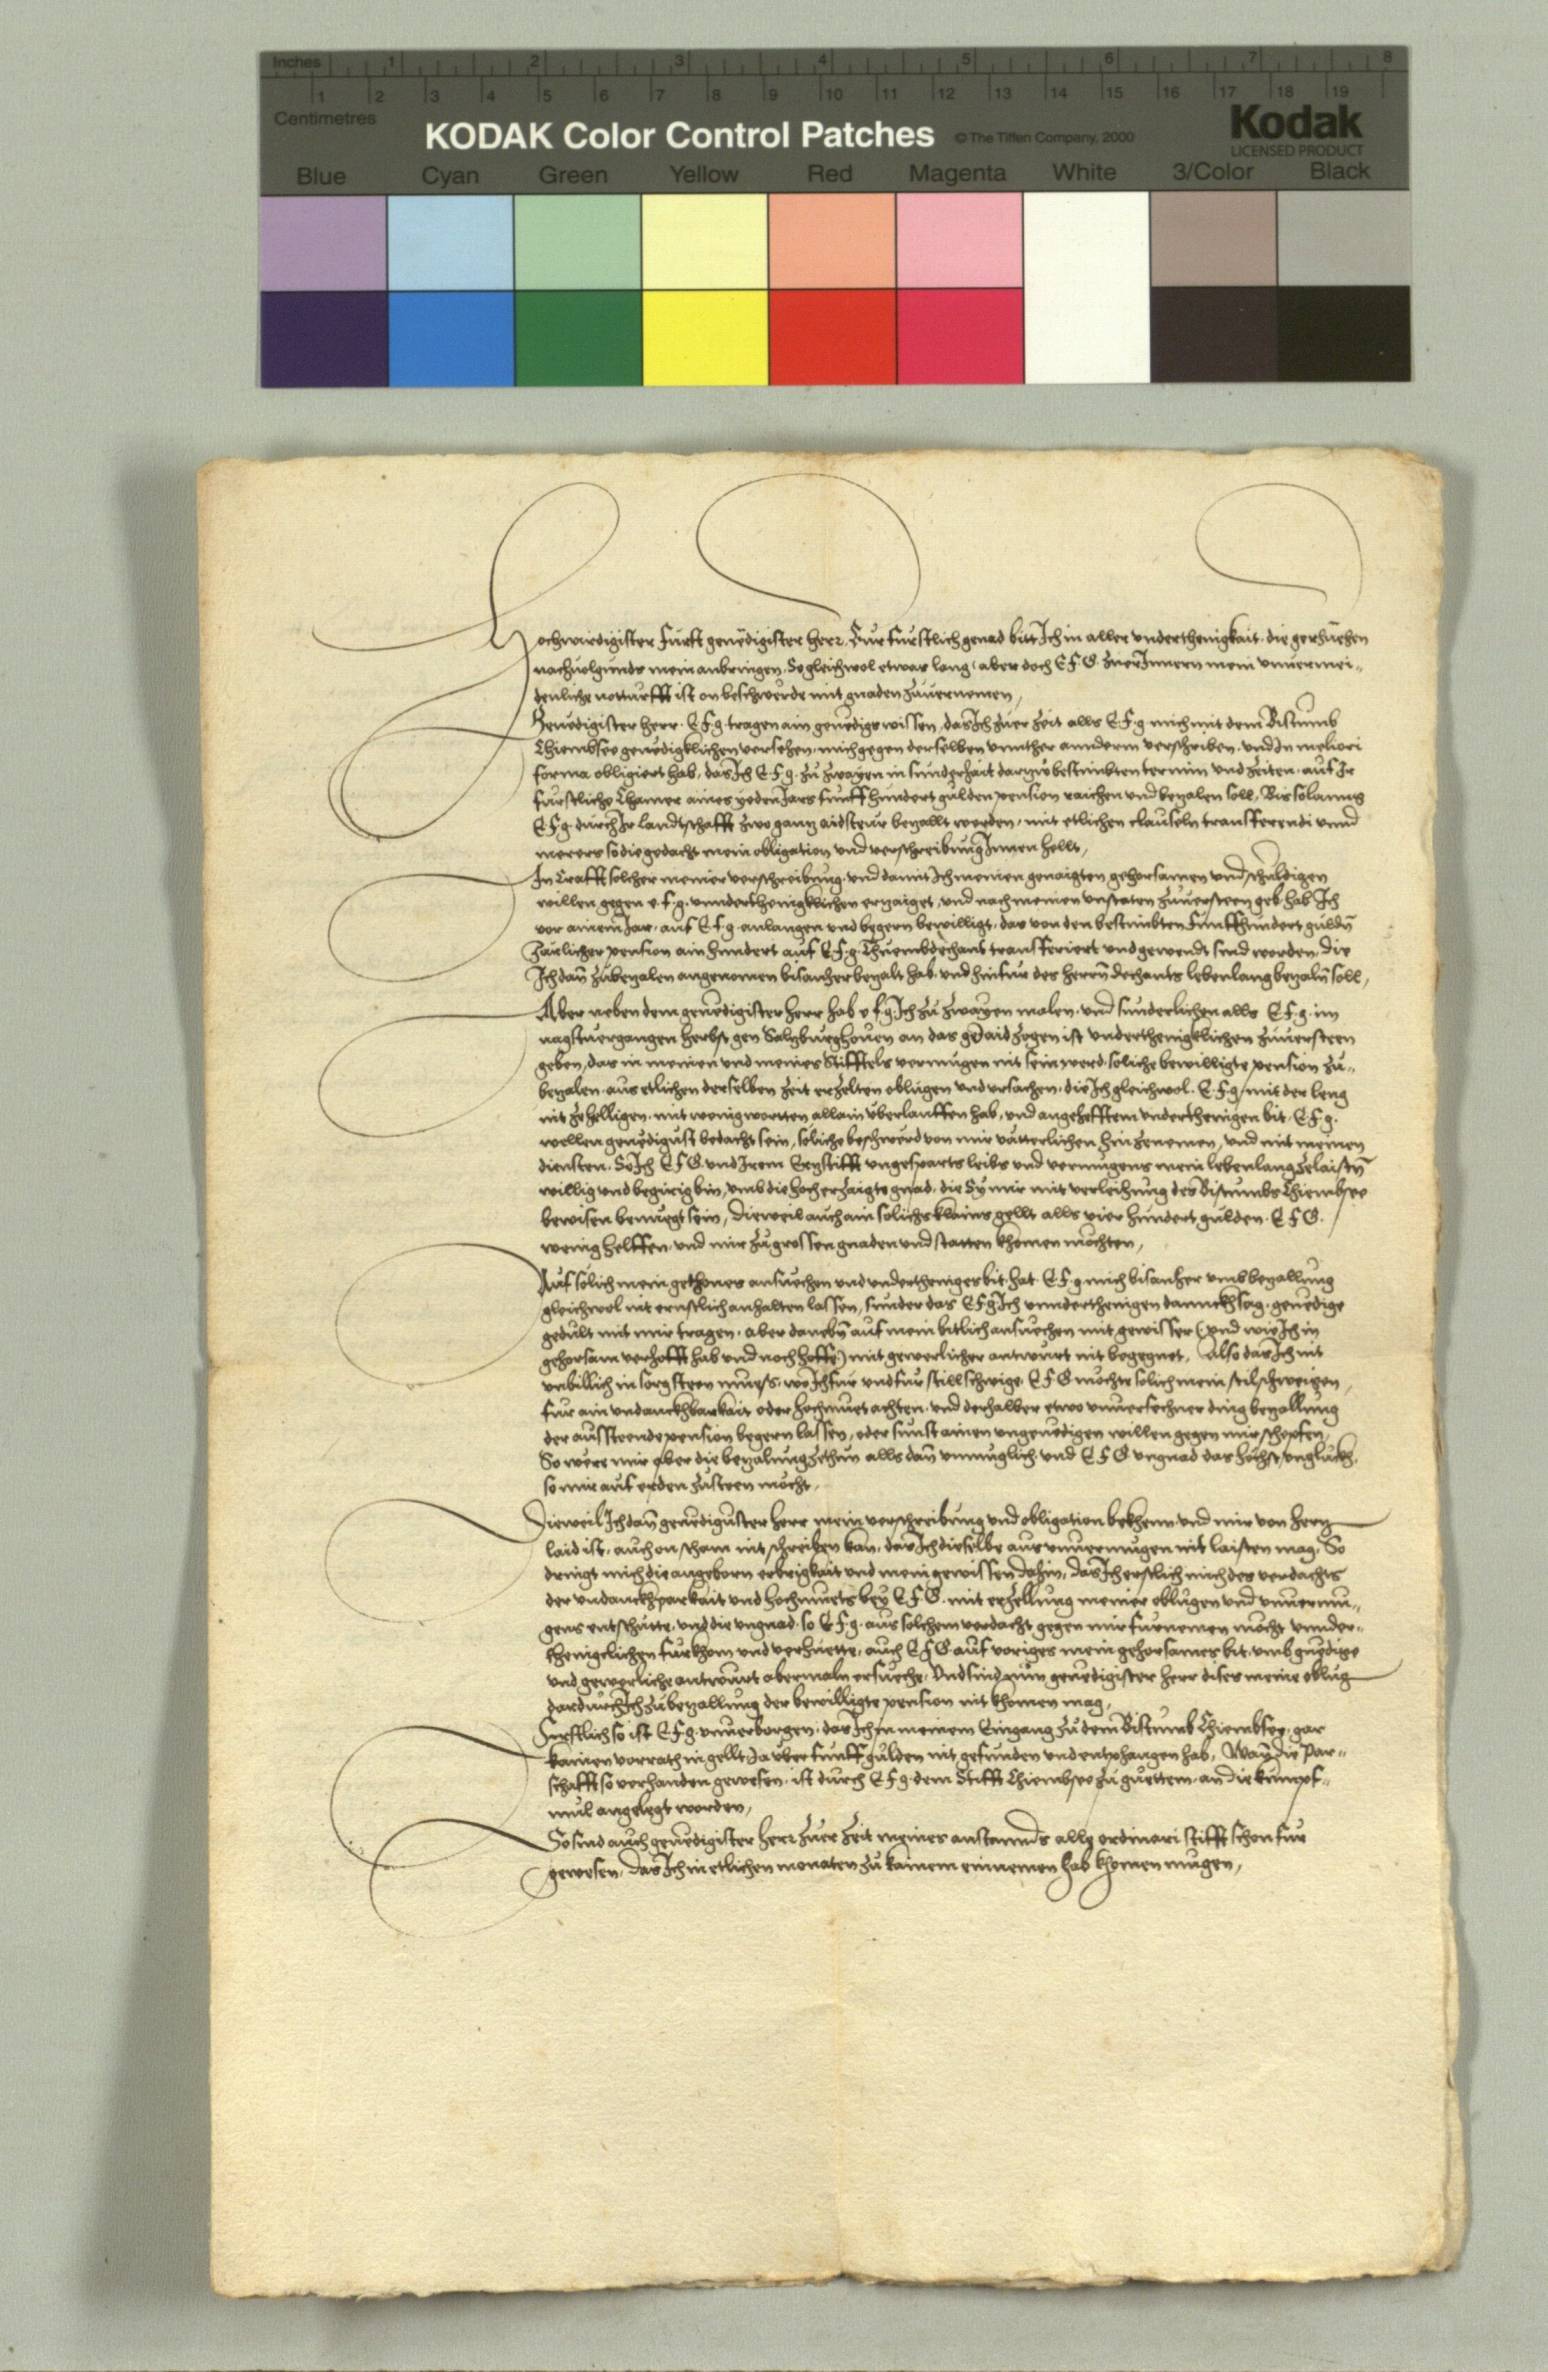 Inches 1 2 3 4 5 6 7 8
1 2 3 4 5 6 7 8 9 10 11 12 13 14 15 16 17 18 19
Centimetres
KODAK Color Control Patches © The Tiffen Company, 2000 Kodak
LICENSED PRODUCT
Blue Cyan Green Yellow Red Magenta White 3/Color Black
Hochwirdigister Furst genedigister herr. Eur furstlich genad bitt Ich in aller underthenigkait. die geruehen
nachuolgunds mein anbringen. So gleichwol etwas lang / aber doch E F G. zuerInnern mein vnuermei-
denliche notturfft ist on beschwerde mit gnaden zuuernemen,
Genedigister herr. E.f.g. tragen ain genedigs wissen, das Ich zuer zeit alls E.f.g. mich mit dem Bistumb
Chiembsee genedigklichen versehen, mich gegen derselben vnnther annderm verschriben. vnd In meliori
forma obligiert hab, das Ich E.f.g. zu zwayen in sunderhait darzue bestimbten termin und zeiten. auf Ir
furstliche Chamer aines yeden Jars funff hundert gulden pension raichen und bezalen soll, Bis solanng
E.f.g. durch Ir landtschafft zwo ganz aidsteur bezallt werden, mit etlichen clauseln transferendi unnd
merers so die gedacht mein obligation und verschreibung Innen hellt,
In Crafft solcher meiner verschreibung. vnd damit Ich meinen genaigten gehorsamen und schuldigen
willen gegen e.f.g. vnnderthenigklichen erzaiget, und nach meinen vnstaten zuuersteen geb. hab Ich
vor ainem Jar. auf E.f.g. anlangen und begern bewilligt, das von den bestimbten Funffhundert guldn̄
Järlicher pension ain hundert auf E.f.g. Thuembdechant transferiert und gewendt sind worden, die
Ich dan̄ zubezalen angenomen bisanher bezalt hab, und hinfur des herrn̄ dechants lebenlang bezaln̄ soll,
Aber neben dem genedigister herr hab e f g. Ich zu zwayen malen. und sunderlichen alls E.f.g. im
nagstuergangen herbst gen Salzburghouen an das geiaid zogen ist underthenigklichen zuuersteen
geben, das in meinen und meines Stiffts vermugen nit sein werd. soliche bewilligte pension zu-
bezalen. aus etlichen derselben zeit erzelten obligen und ursachen, die Ich gleichwol. E.f.g. mit der leng
nit ze helligen. mit wenig wortten allain uberlauffen hab, und angehefftem underthenigen bit. E.f.g.
wellen genedigist bedacht sein, soliche beschwerd von mir vätterlichen hinzenemen, und mit meinen
diensten, So Ich E F G. und Irem Erzstifft ungesparts leibs und vermugens mein lebenlang ze laistn̄
willig und begirig bin, umb die hoch erzaigte gnad. die Sy mir mit verleihung des Bistumbs Chiembsee
bewisen benuegt sein, dieweil auch ain solichs klains gellt alls vier hundert gulden. E F G.
wenig helffen. und mir zu grossen gnaden und statten khomen mochten,
Auf solich mein gethones ansuechen und underthenigs bit. hat. E.f.g. mich bisanher umb bezallung
gleichwol nit ernstlich anhalten lassen, sunder das E f g Ich vnnderthenigen dannckh sag. genedige
gedult mit mir tragen. aber danebn̄ auf mein bitlich ansuechen mit gewisser (und wie Ich in
gehorsam verhofft hab und noch hoffe) mit gewerlicher antwurt nit begegnet, Also das Ich nit
unbillich in sorg steen mues, wo Ich fur und fur still schwige. E F G mochte solich mein stilschweigen,
fur ain undanckhbarkait oder hochmuet achten. und derhalber etwo vnuersechner ding bezallung
der aussteende pension begern lassen, oder sunst ainen ungenedigen willen gegen mir schepfen,
So were mir aber die bezalung zethun alls dan̄ unmuglich und E F G ungnad das höchst unglückh,
so mir auf erden zusteen möcht,
Dieweil Ich dan̄ genedigister herr mein verschreibung und obligation bekhenn und mir von hertzen
laid ist, auch on scham nit schreiben kan, das Ich dieselbe aus vnuermugen nit laisten mag, So
dringt mich die angeborn erbrigkait und mein gewissen dahin, das Ich erstlich mich des verdachts
der undanckhparkait und hochmuets bey E F G. mit erzellung meiner obligen und vnuermu-
gens entschutte, und die ungnad. so E.f.g. aus solchem verdacht gegen mir furnemen möcht vnnder-
thenigclichen furkhom und verhuette, auch E F G auf voriges mein gehorsames bit, umb gnedige
und gewerliche antwurt abermaln ersueche, Und sind nun genedigister herr dises meine oblig
dardurch Ich zu bezallung der bewilligte pension nit khomen mag,
Erstlich so ist E.f.g. vnuerborgen, das Ich in meinem Eingang zu dem Bistumb Chiembsee, gar
kainen vorrath in gellt Ja über funff gulden nit gefunden und entphangen hab, Wan̄ die Par-
schafft so verhanden gewesen. ist durch E.f.g. dem Stifft Chiembsee zu guettem. an die kumpf-
mül angelegt worden,
So sind auch genedigister herr zuer zeit meines anstannds alle ordinari stifft schon fur
gewesen, das Ich in etlichen monaten zu kainem einnemen hab khomen mugen,